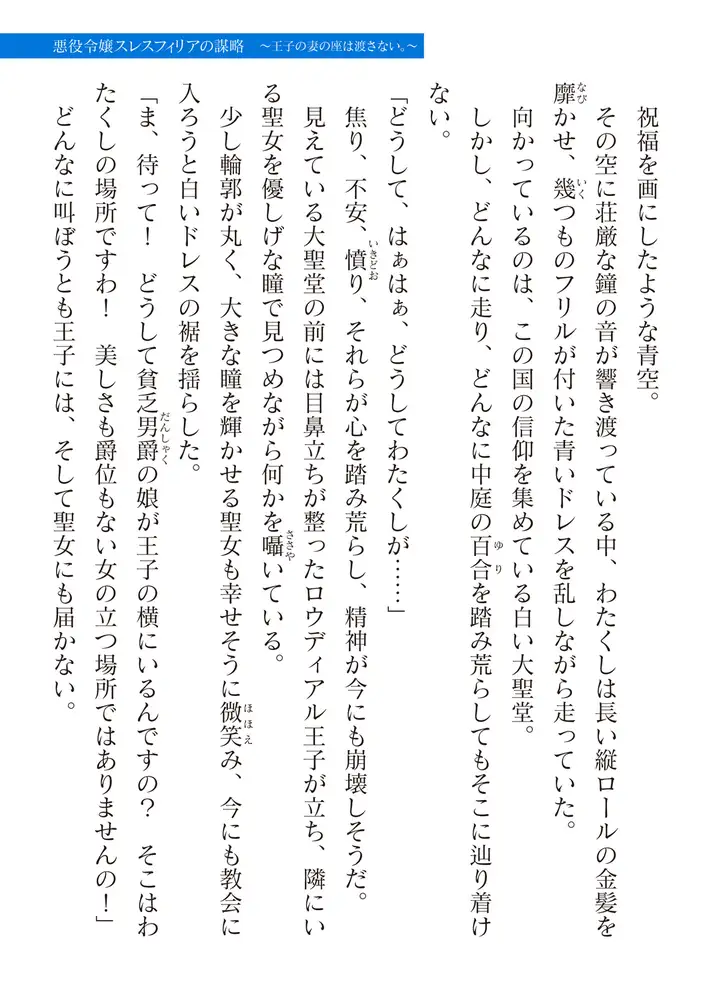 悪役令嬢スレスフィリアの謀略　～王子の妻の座は渡さない。～
祝福を画にしたような青空。
その空に荘厳な鐘の音が響き渡っている中、わたくしは長い縦ロールの金髪を
靡かせ、幾つものフリルが付いた青いドレスを乱しながら走っていた。
向かっているのは、この国の信仰を集めている白い大聖堂。
しかし、どんなに走り、どんなに中庭の百合を踏み荒らしてもそこに辿り着け
ない。
「どうして、はぁはぁ、どうしてわたくしが……」
焦り、不安、憤り、それらが心を踏み荒らし、精神が今にも崩壊しそうだ。
見えている大聖堂の前には目鼻立ちが整ったロウディアル王子が立ち、隣にい
る聖女を優しげな瞳で見つめながら何かを囁いている。
少し輪郭が丸く、大きな瞳を輝かせる聖女も幸せそうに微笑み、今にも教会に
入ろうと白いドレスの裾を揺らした。
「ま、待って！　どうして貧乏男爵の娘が王子の横にいるんですの？　そこはわ
たくしの場所ですわ！　美しさも爵位もない女の立つ場所ではありませんの！」
どんなに叫ぼうとも王子には、そして聖女にも届かない。